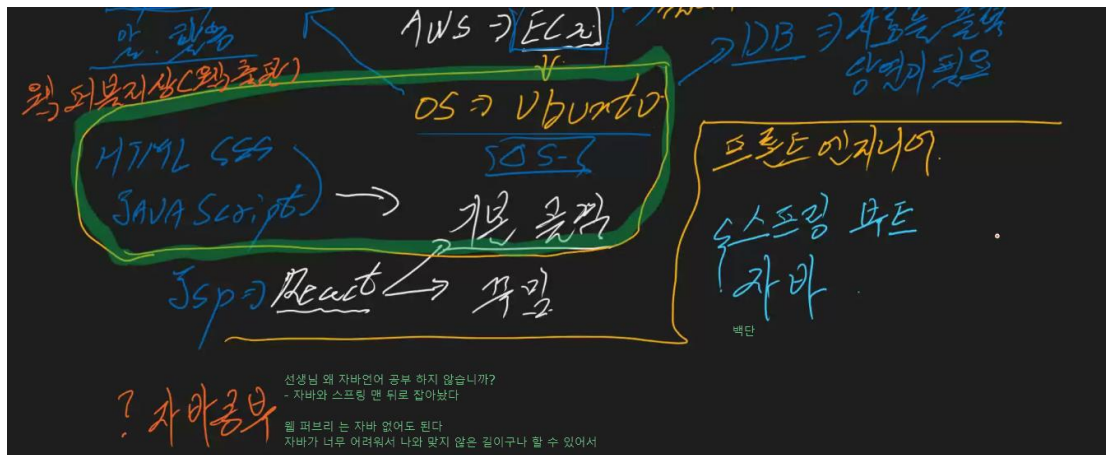 알.활용
AWS ⇒ EC2
⇒ DB ⇒ 자료는 플랙
당연기 필요
웹퍼블리싱(웹출판)
OS ⇒ Ubuntu
HTML CSS
JAVA Script
→ 기본 골격
Jsp ⇒ React
꾸밈
프론트 엔지니어.
스프링 부트
자바
백단
? 자바공부
선생님 왜 자바언어 공부 하지 않습니까?
- 자바와 스프링 맨 뒤로 잡아놨다
웹 퍼브리 는 자바 없어도 된다
자바가 너무 어려워서 나와 맞지 않은 길이구나 할 수 있어서